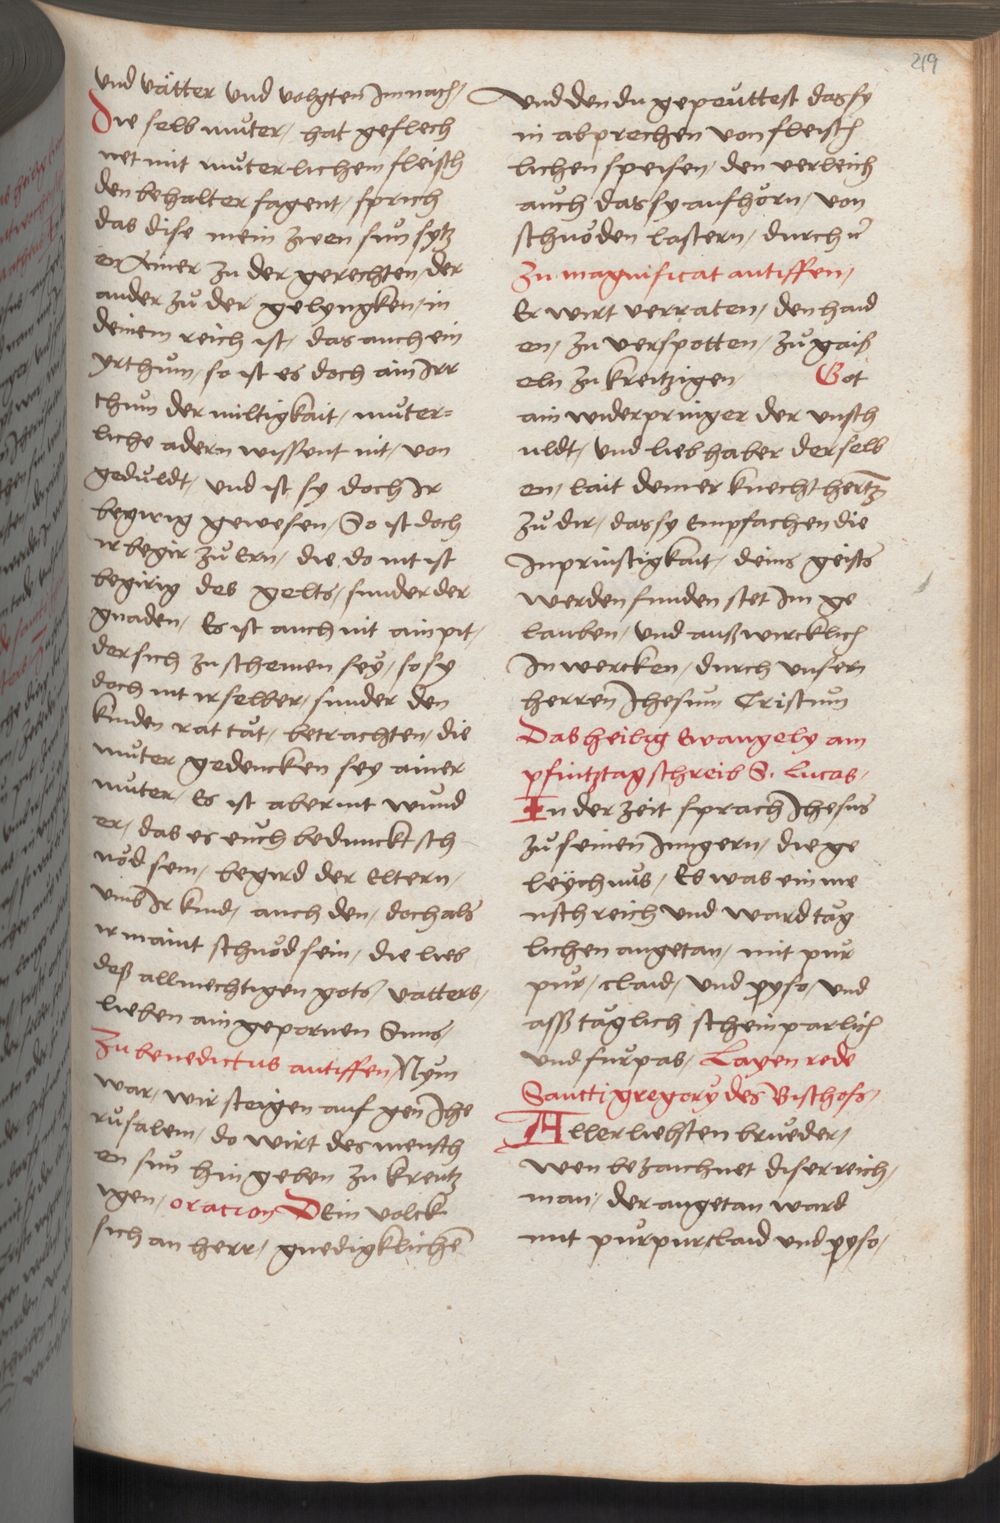 219
vnd vätter vnd volgten Im nach /
Die selb muter / hat geflech
net mit muterlichem fleisch
den behalter sagent / sprich
das dise mein zwen sun sytz
en / einer zu der gerechten / der
ander zů der gelyngken / in
deinem reich ist / das auch ein
yrthum / so ist es doch ain Irr
thum der miltigkait / muter=
liche adern wissent nit / von
geduldt / vnd ist sy doch Ir
begirig gewesen / So ist doch
ir begir zů Ern / die do nit ist
begirig des gelts / sunder der
gnaden / Es ist auch nit ain pit /
der sich zu schemen sey / so sy
doch nit ir selber / sunder den
kinden rat tůt / betrachten / die
můter gedencken sey ainer
můter / Es ist aber nit wund
er / das es euch bedunckt sch
nöd sein / begird der Eltern /
vmb Ir kind / auch den / doch als
ir maint schnöd sein / die lieb
deß allmechtigen gots / vatters /
lieben aingepornen Suns
Zu benedictus antiffen / Nym
war / wir steigen auf gen Jhe
rusalem / do wirt des mensch
en sun hin geben zu kreutz
igen / oracion Dein volck
sich an herr / gnedigklichen
vnd den du gepeuttest das sy
in abprechen von fleisch
lichen speisen / den verleich
auch das sy aufhörn / von
schnöden lastern / durch u
Zu magnificat antiffen /
Er wirt verraten / den haid
en / zu verspotten / zů gaiß
eln zu kreitzigen / Got
ain widerpringer der vnsch
uldt / vnd liebhaber derselb
en / lait deiner knecht hertz
zů dir / das sy Empfachen die
Inprinstigkait / deins geists
werden funden stet Im ge
lauben / vnd auß wircklich
In wercken / durch vnsern
herren Jhesum Cristum
Das heilig Ewangely am
pfintztag schreib S. Lucas /
In der zeit sprach Jhesus
zů seinen Jungern / die ge
leÿchnus / Es was ein me
nsch reich vnd ward täg
lichen angetan / mit pur
pur / claid / vnd pyso / vnd
asß täglich scheinparlich
vnd furpas / Layen rede
Sancti gregory des Bischofs /
Aller liebsten brueder /
wen bezaichnet diser reich /
man / der angetan ward
mit purpurclaid vnd pyso /